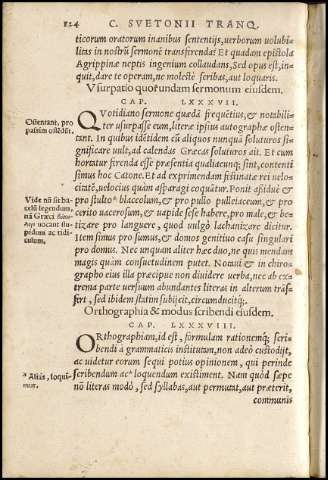 124 C. SVETONII TRANQ.
ticorum oratorum inanibus sententijs, uerborum uolubi-
litas in nostrũ sermonẽ transferenda? Et quadam epistola
Agrippinæ neptis ingenium collaudans, Sed opus est, in-
quit, dare te operam, ne molestè scribas, aut loquaris.
Vsurpatio quorundam sermonum eiusdem.
CAP. LXXXVII.
Quotidiano sermone quædã frequẽtius, & notabili-
Ostentant, pro
passim ostẽdũt.
ter usurpasse eum, literæ ipsius autographæ osten-
tant. In quibus idẽtidem cũ aliquos nunquã soluturos si-
gnificare uult, ad calendas Græcas soluturos ait. Et cum
hortatur ferenda esse præsentia qualiacunq; sint, contenti
simus hoc Catone. Et ad exprimendam festinatæ rei uelo-
citatẽ, uelocius quàm asparagi coquãtur. Ponit assiduè &
Vide nũ
legendum,
nã Græci
uocant
pro stulto baceolum, & pro pullo pulleiaceum, & pro
cerito uacerosum, & uapide sese habere, pro male, & be-
tizare pro languere, quod uulgò lachanizare dicitur.
Item simus pro sumus, & domos genitiuo casu singulari
pro domus. Nec unquam aliter hæc duo, ne quis mendam
magis quàm consuetudinem putet. Notaui & in chiro-
grapho eius illa præcipue non diuidere uerba, nec ab ex-
trema parte uersuum abundantes literas in alterum trãs-
fert, sed ibidem statim subijcit, circumducitq;.
Orthographia & modus scribendi eiusdem.
CAP. LXXXVIII.
Orthographiam, id est, formulam rationemq; scri-
bendi à grammaticis institutam, non adeò custodijt,
ac uidetur eorum sequi potius opinionem, qui perinde
* Aliàs, loqui-
mur.
scribendum ac* loquendum existiment. Nam quòd sæpe
nõ literas modò, sed syllabas, aut permutat, aut præterit,
communis